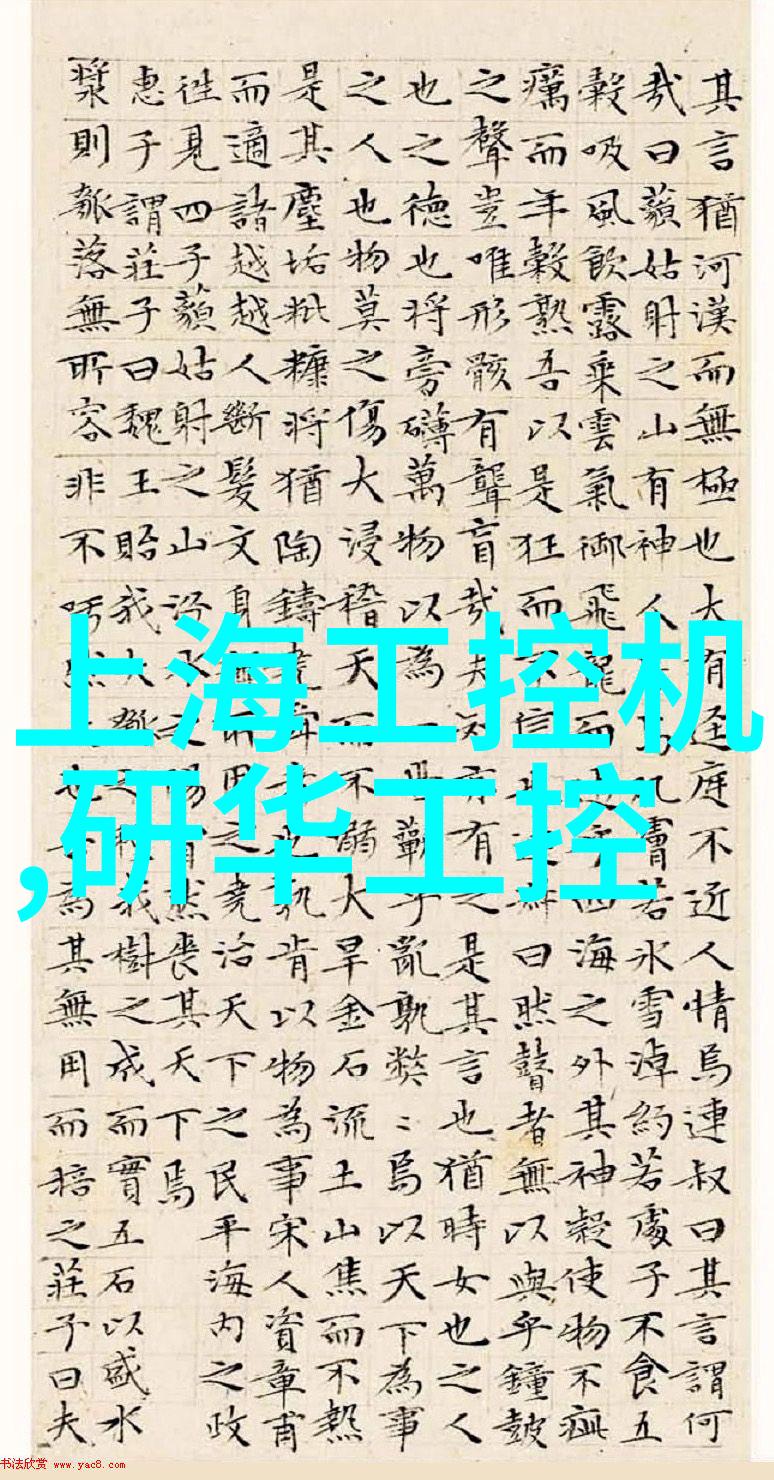 其言猶河漢而無極也大有迳庭不近人情焉連叔曰其言謂何
哉曰藐姑射之山有神人焉肌膚若氷雪淖約若處子不食五
穀吸風飲露乗雲氣御飛龍而遊乎四海之外其神凝使物不疵
癘而年穀熟吾以是狂而不信也連叔曰然瞽者無以與乎鐘皷
之聲豈唯形骸有聾盲哉夫知亦有有之是其言也猶時女也之人
也之德也将旁礴萬物以為一世蘄乎亂孰弊〻焉以天下為事
之人也物莫之傷大浸稽天而不溺大旱金石流土山焦而不熱
是其塵垢粃糠将猶陶鑄堯舜者也孰肯以物為事宋人資章甫
而適諸越越人斷髮文身無所用之堯治天下之民平海内之政
往見四子藐姑射之山汾水之陽窅然喪其天下焉
惠子謂莊子曰魏王貽我大瓠之種我樹之成而實五石以盛水
漿則瓠落無所容非不呺然大也吾為其無用而掊之莊子曰夫
上海工控机
,研华工控
书法欣赏 www.yac8.com